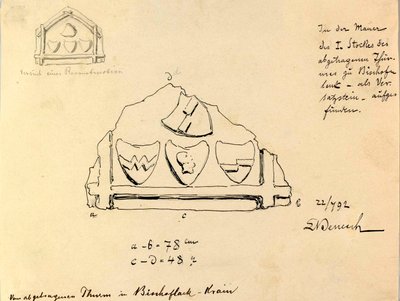 Versuch einer Reconstruction
In der Mauer
des I. Stockes des
abgetragenen Thur-
mes zu Bischof-
lack - als Ver-
satzstein - aufge-
funden.
D
a
c
b
22/792
a - b = 78 cm
c - D = 48 "
Von abgetragenen Thurm in Bischoflack - Krain